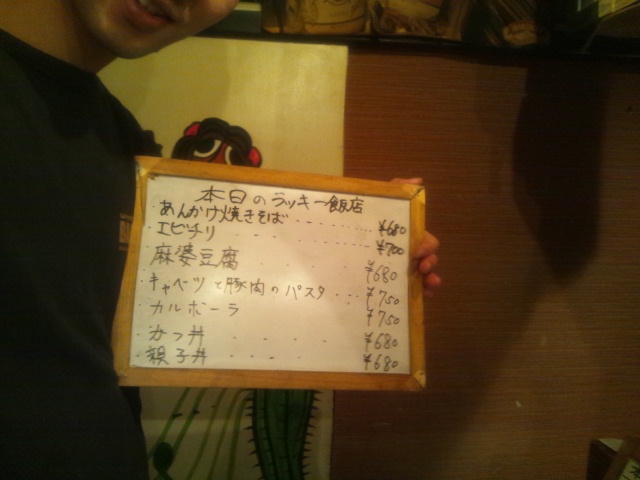 本日のラッキー飯店
あんかけ焼きそば ・・・・・・・・ ¥680
エビチリ ・・・・・・・・ ¥700
麻婆豆腐 ・・・・ ¥680
キャベツと豚肉のパスタ・・・ ¥750
カルボーラ ¥750
かつ丼 ・・・・ ¥680
親子丼 ・・・・ ¥680